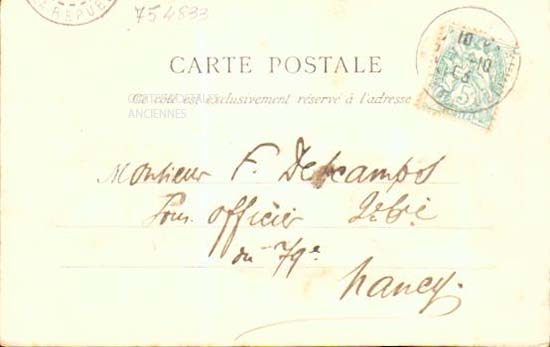 RÉPUBL
754833
CARTE POSTALE
Ce côté est exclusivement réservé à l'adresse
CARTES POSTALES
ANCIENNES
10
5
Monsieur F. Descamps
Sous officier
du 79e
Nancy.